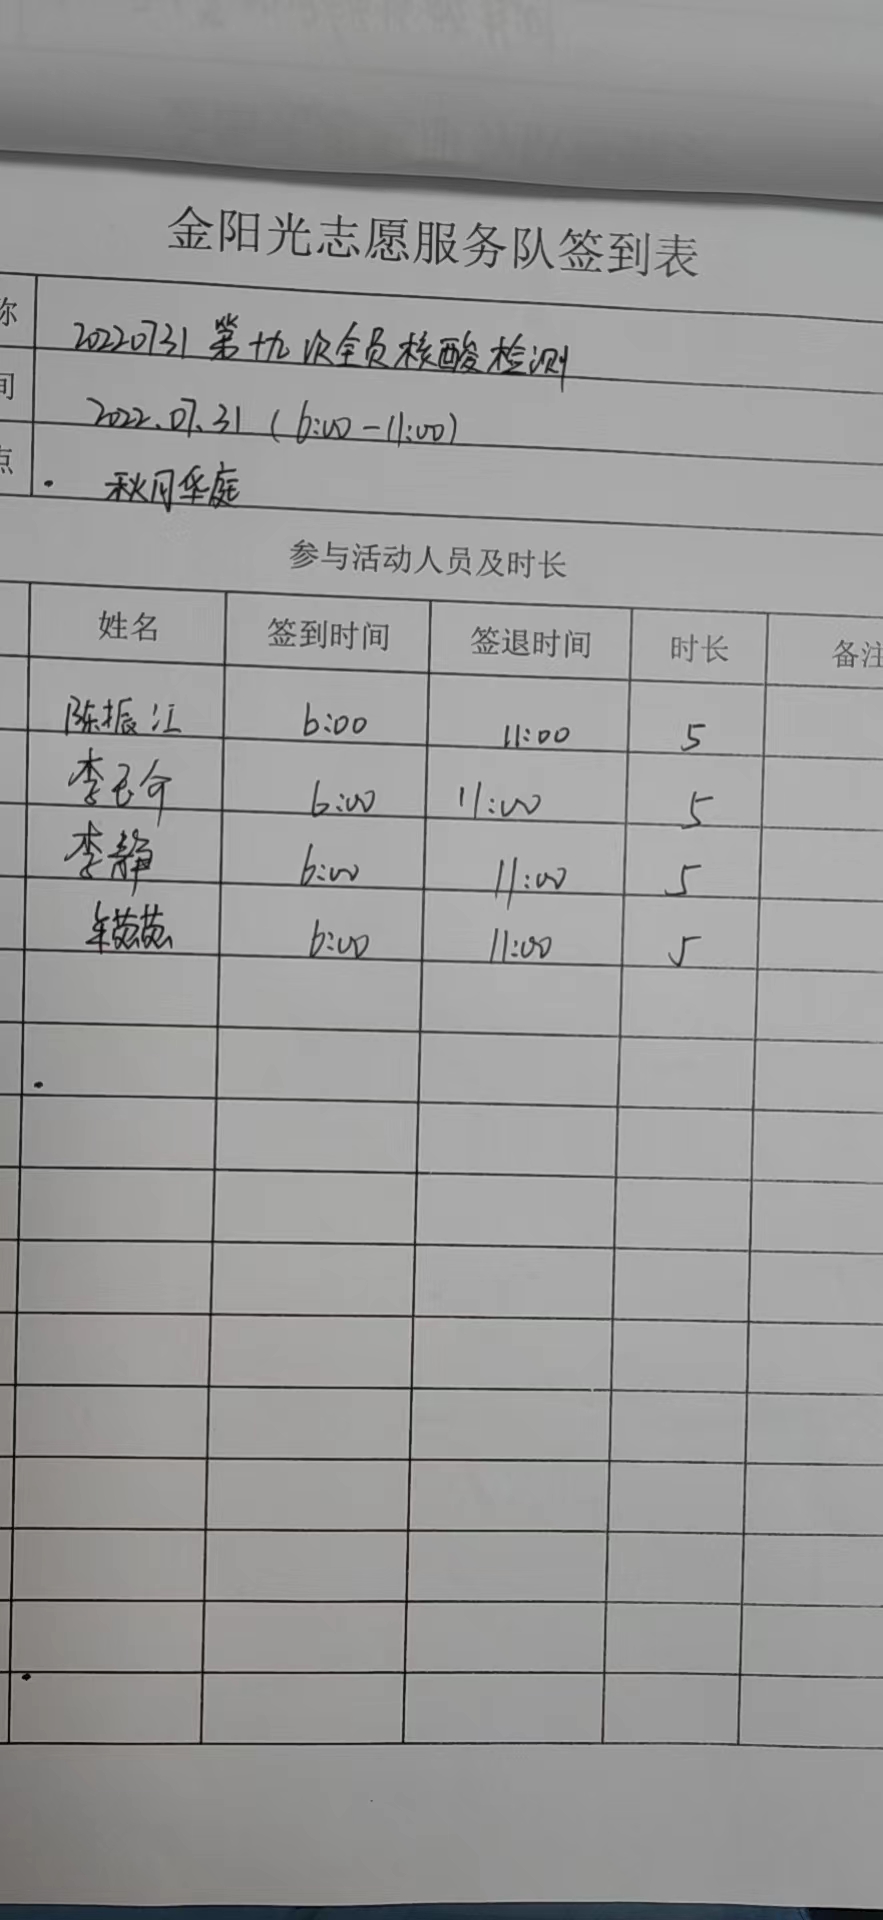 金阳光志愿服务队签到表
称 20220731第十九次全员核酸检测
间 2022.07.31(6:00-11:00)
点 秋月华庭
参与活动人员及时长
姓名 签到时间 签退时间 时长 备注
陈振江 6:00 11:00 5
李玉介 6:00 11:00 5
李静 6:00 11:00 5
6:00 11:00 5